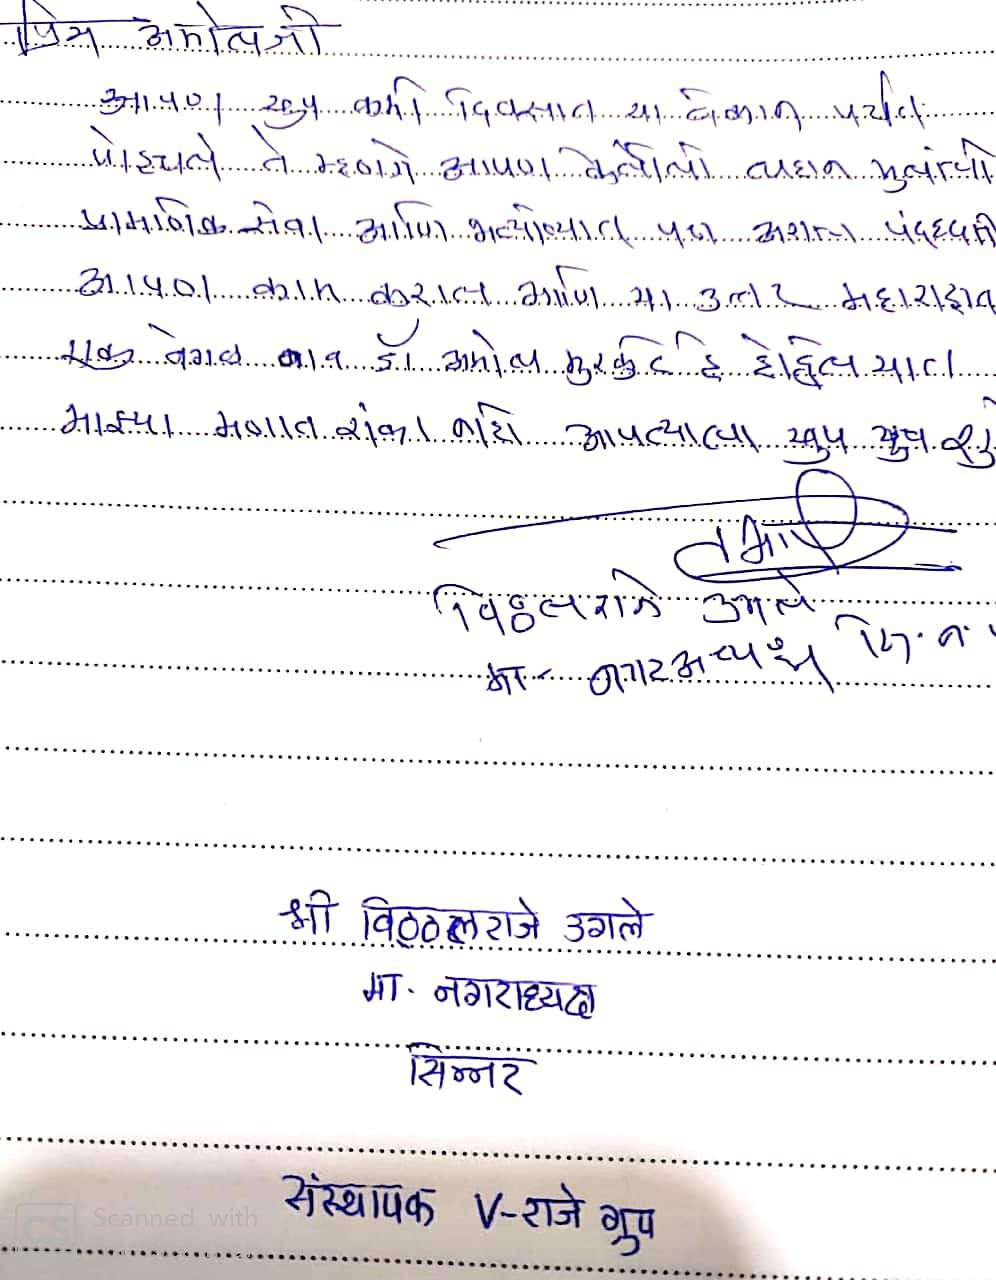 प्रिय अमोलजी
आपण खुप कमी दिवसात या ठिकाण पर्यंत
पोहचले ते म्हणजे आपण केलेली लहान मुलांची
प्रामाणिक सेवा आणि भल्यापणात पण अशाच पध्दतनी
आपण काम कराल आणि या उत्तर महाराष्ट्रात
एक वेगळ नाव डॉ अमोल मुरकुटे हे होईल यात
माझ्या मनात शंका नाही आपल्याला खुप खुप
विठ्ठलराजे उगले
मा. नगरअध्यक्ष सि. न.
श्री विठ्ठलराजे उगले
मा. नगराध्यक्ष
सिन्नर
संस्थापक V-राजे ग्रुप
CS Scanned with